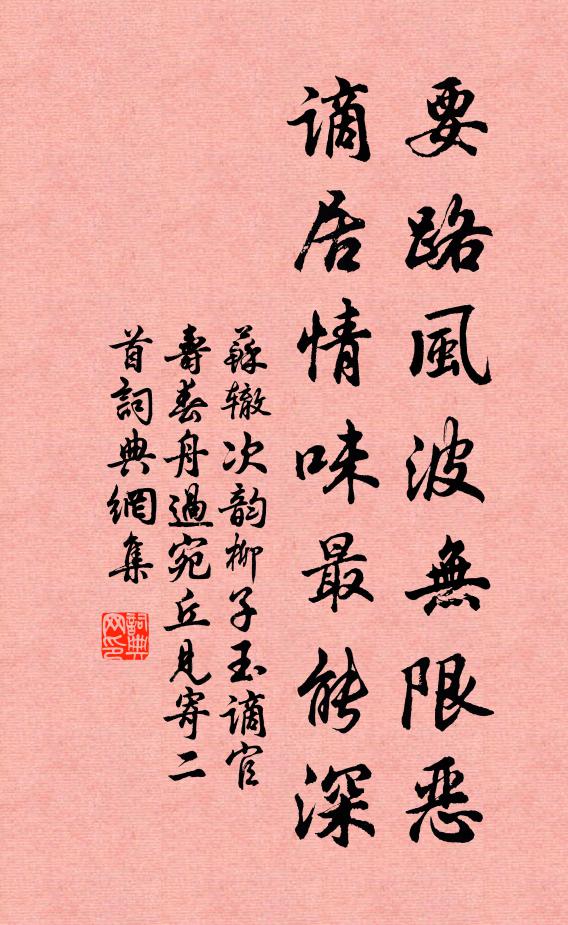 要路風波無限惡
谪居情味最能深
蘇辙次韵柳子玉谪官
壽春舟過宛丘見寄二
首詞典網集
詞典
网印